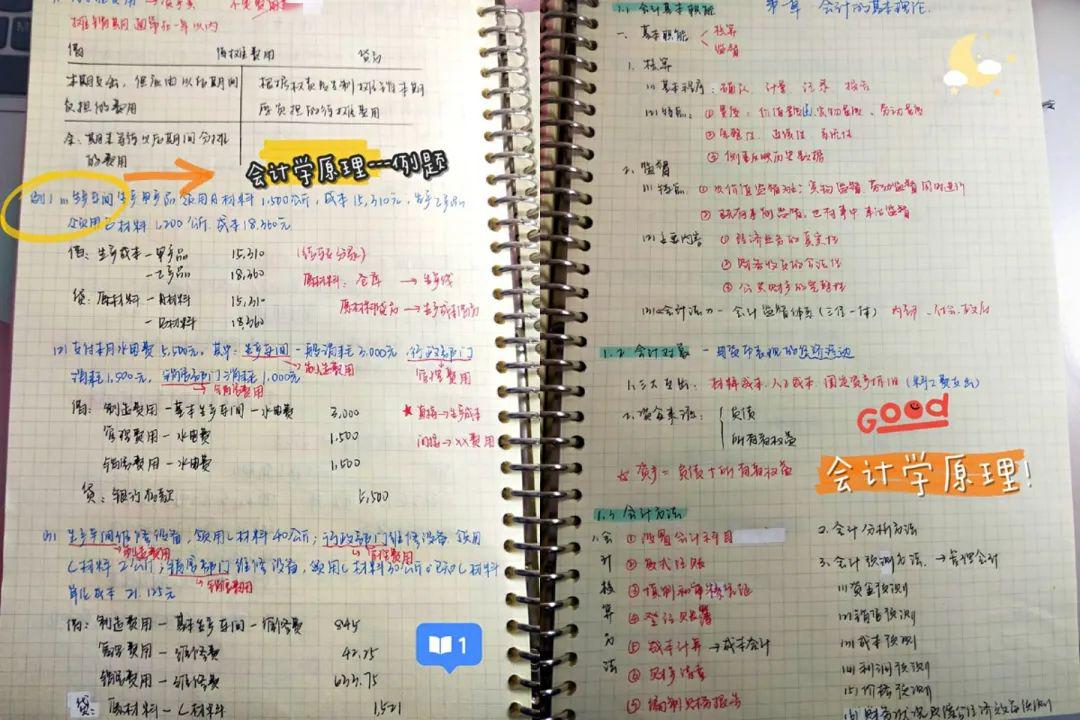 摊销期通常在一年以内
借 待摊费用 贷方
本期支出，但应由以后期间负担的费用
根据权责发生制 摊销本期应负担的待摊费用
余：期末等待以后期间分摊的费用
会计学原理---例题
例1 (1) 生产车间生产甲产品领用A材料1,500公斤，成本15,310元，生产乙产品
领用B材料1,200公斤，成本18,360元
借：生产成本-甲产品 15,310
-乙产品 18,360
原材料：仓库 → 生产线
贷：原材料-A材料 15,310
-B材料 18,360
(2) 支付本月水电费5,500元，其中：生产车间一般消耗3,000元，行政部门
制造费用
管理费用
消耗1,500元，销售部门消耗1,000元
销售费用
借：制造费用-基本生产车间-水电费 3,000
管理费用-水电费 1,500
销售费用-水电费 1,500
★直接→生产成本
间接→XX费用
贷：银行存款 5,500
(3) 生产车间维修设备，领用C材料40公斤；行政部门维修设备，领用
制造费用
管理费用
C材料2公斤；销售部门维修设备，领用C材料30公斤。已知C材料
销售费用
单位成本21.125元
借：制造费用-基本生产车间-维修费 845
管理费用-维修费 42.25
销售费用-维修费 633.75
贷：原材料-C材料 1,521
1
1.1 会计基本职能
第一章 会计的基本理论
一、基本职能
核算
监督
1. 核算
(1) 基本程序：确认 计量 记录 报告
(2) 特点：① 量度：价值量度、实物量度、劳动量度
② 完整性 连续性 系统性
③ 侧重反映历史数据
2. 监督
(1) 特点 ① 以价值监督为主；实物监督、劳动监督同时进行
② 既有事前监督，也有事中事后监督
(2) 主要内容 ① 经济业务的真实性
② 财务收支的合法性
③ 公共财产的完整性
会计监督体系(三位一体) 内部、社会、政府
1.2 会计对象 - 用货币表现的经济活动
1. 三大支出：材料成本、人工成本、固定资产折旧 (料工费支出)
2. 资金来源：
负债
所有者权益
Good
☆ 资产=负债+所有者权益
会计学原理!
1.3 会计方法
会计核算方法
① 设置会计科目
② 复式记账
③ 填制和审核凭证
④ 登记账簿
⑤ 成本计算 → 成本会计
⑥ 财产清查
⑦ 编制财务报告
2. 会计分析方法
3. 会计预测方法 → 管理会计
(1) 资金预测
(2) 销售预测
(3) 成本预测
(4) 利润预测
(5) 价格预测